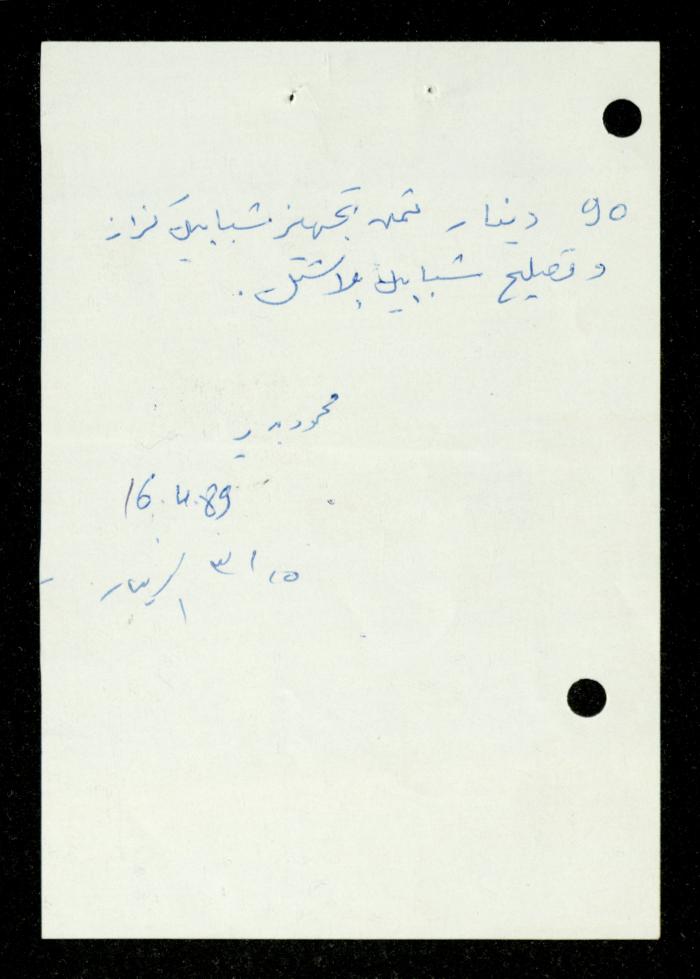 90 دينار ثمن تجهيز شبابيك كزاز
و تصليح شبابيك بلاستك .
محمود بدير
16.4.89